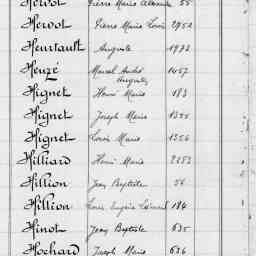 Hervot Pierre Marie Alexandre 55
Hervot Pierre Marie Louis 2952
Heurtault Auguste 1973
Heuzé Marcel André 1457
Auguste
Hignet Henri Marie 183
Hignet Joseph Marie 1355
Hignet Louis Marie 1356
Hilliard Henri Marie 2253
Hillion Jean Baptiste 56
Hillion Louis Eugène 184
Hinot Jean Baptiste 635
Hochard Joseph Marie 636